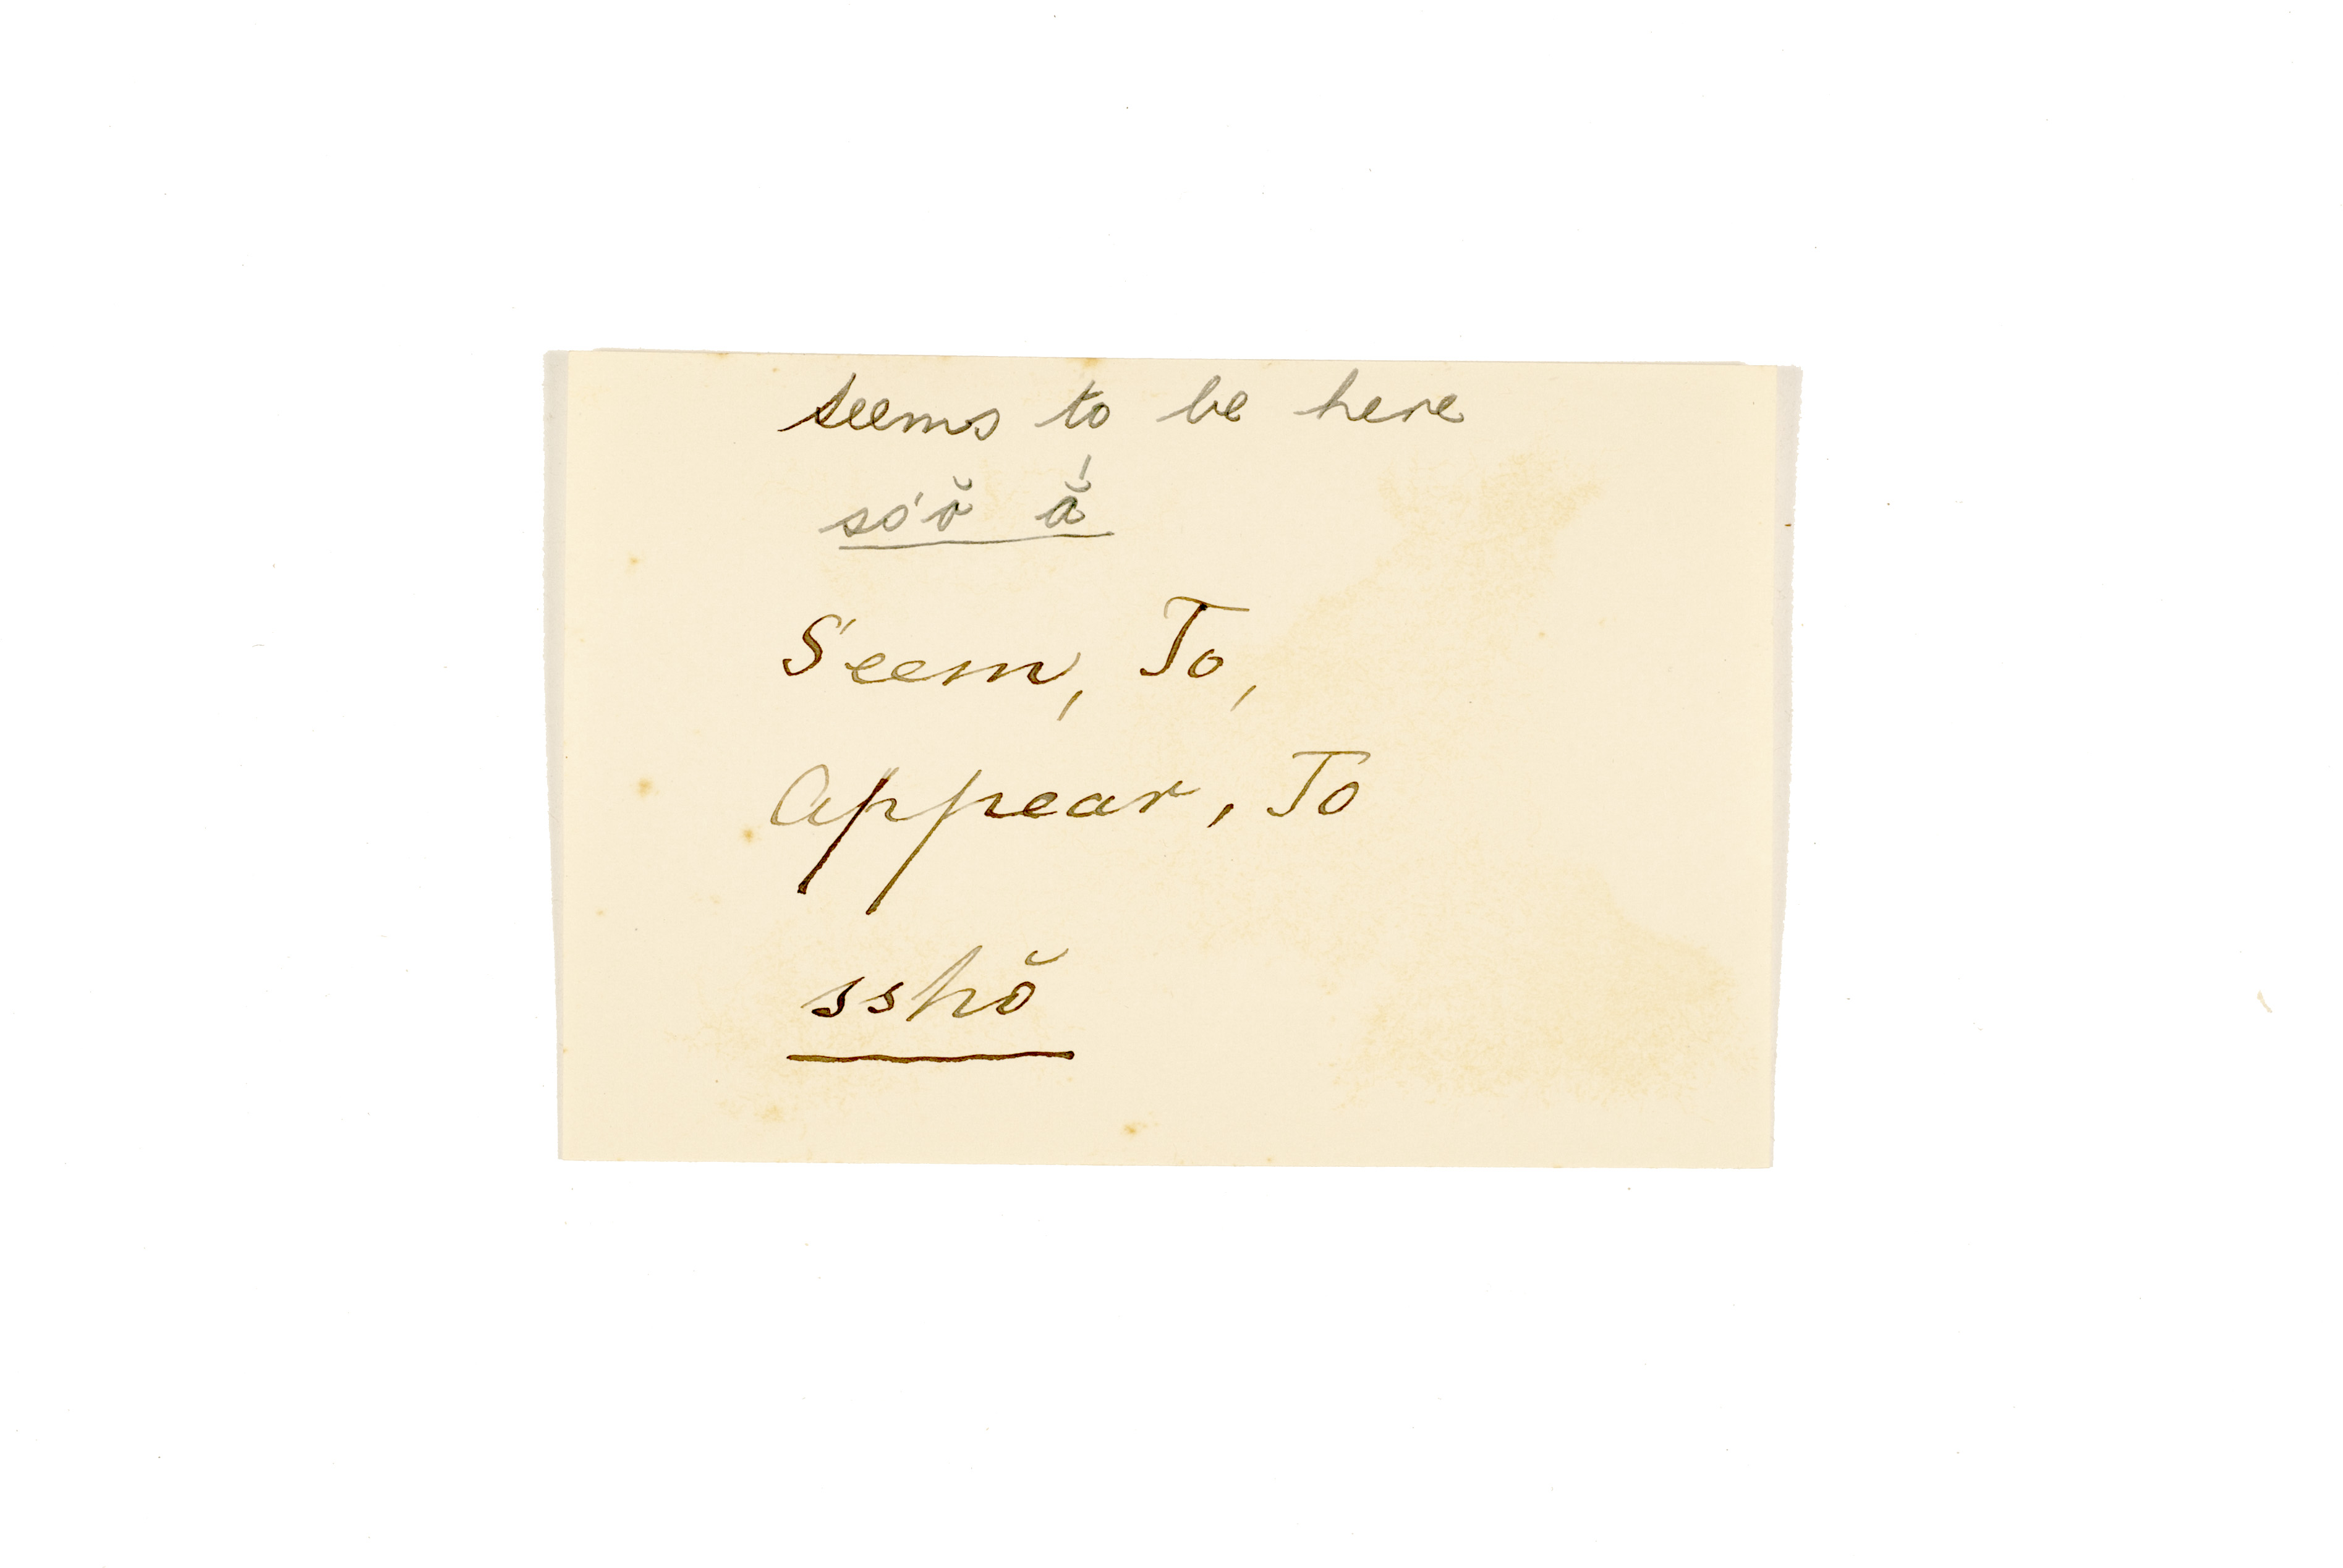 seems to be here
só'ŏ ắ
Seem, To,
Appear, To
sshŏ